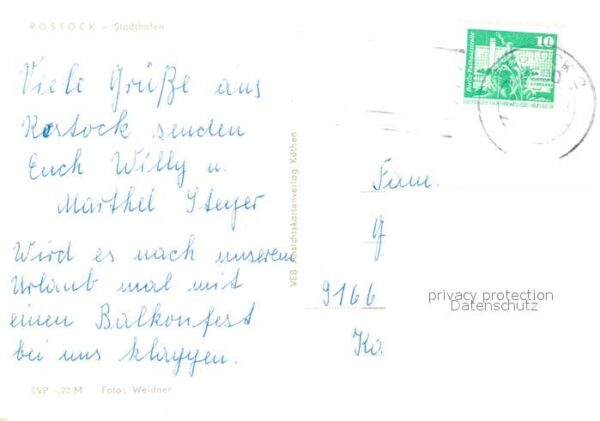 ROSTOCK – Stadthafen
Viele Grüße aus
Rostock senden
Euch Willy u.
Marthel Steyer
Wird es nach unserem
Urlaub mal mit
einen Balkonfest
bei uns klappen.
EVP -,20 M Foto: Weidner
VEB Ansichtskartenverlag Köthen
10
Berlin, Rathausstraße
DEUTSCHE DEMOKRATISCHE REPUBLIK
ROSTOCK 2
Fam.
9166
privacy protection
Datenschutz